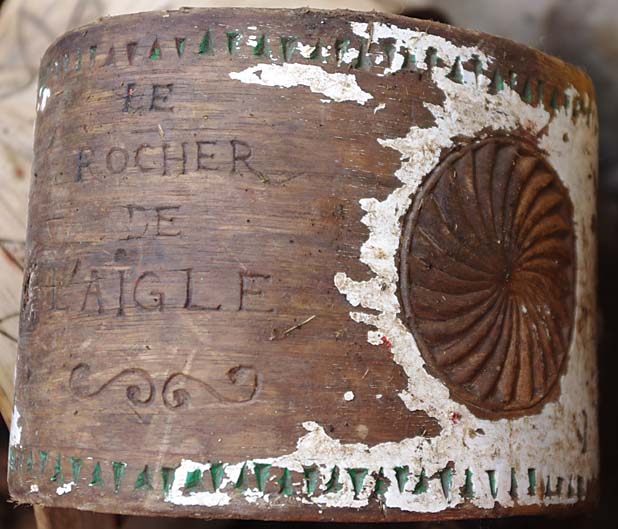 LE
ROCHER
DE
L'AÏGLE